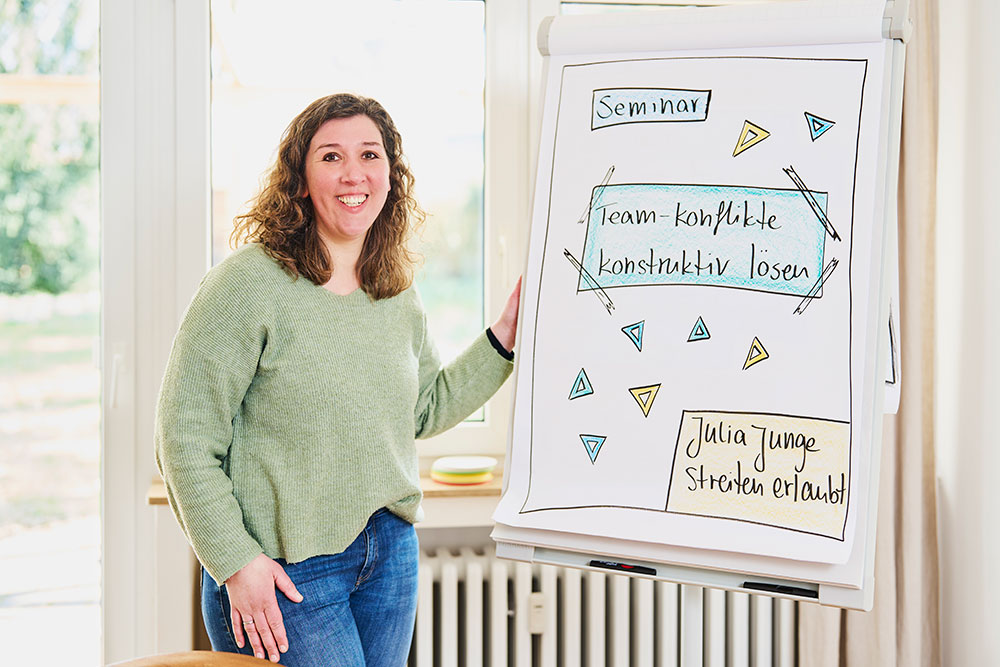 Seminar
Team-Konflikte
konstruktiv lösen
Julia Junge
Streiten erlaubt